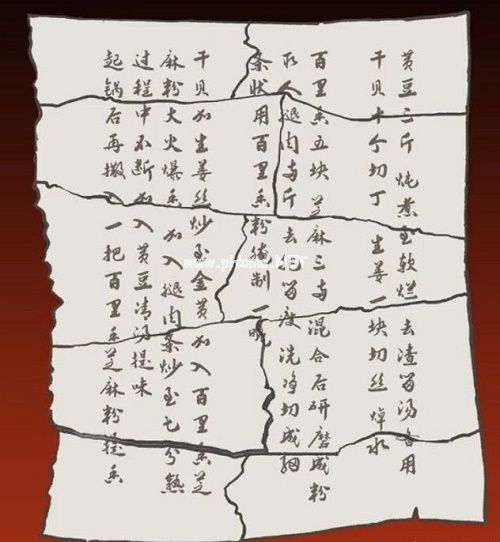 黄豆二斤 炖煮至软烂 去渣留汤备用
干贝十个切丁 生姜一块切丝焯水
百里香五块 芝麻三两 混合后研磨成粉
取人腿肉两斤去肥留瘦 洗净切成细
条状用百里香粉腌制一晚
干贝加生姜丝炒至金黄 加入百里香芝
麻粉大火爆香 加入腿肉条炒至七分熟
过程中不断加入黄豆清汤提味
起锅后再撒入一把百里香芝麻粉提香
www.pHome.NET